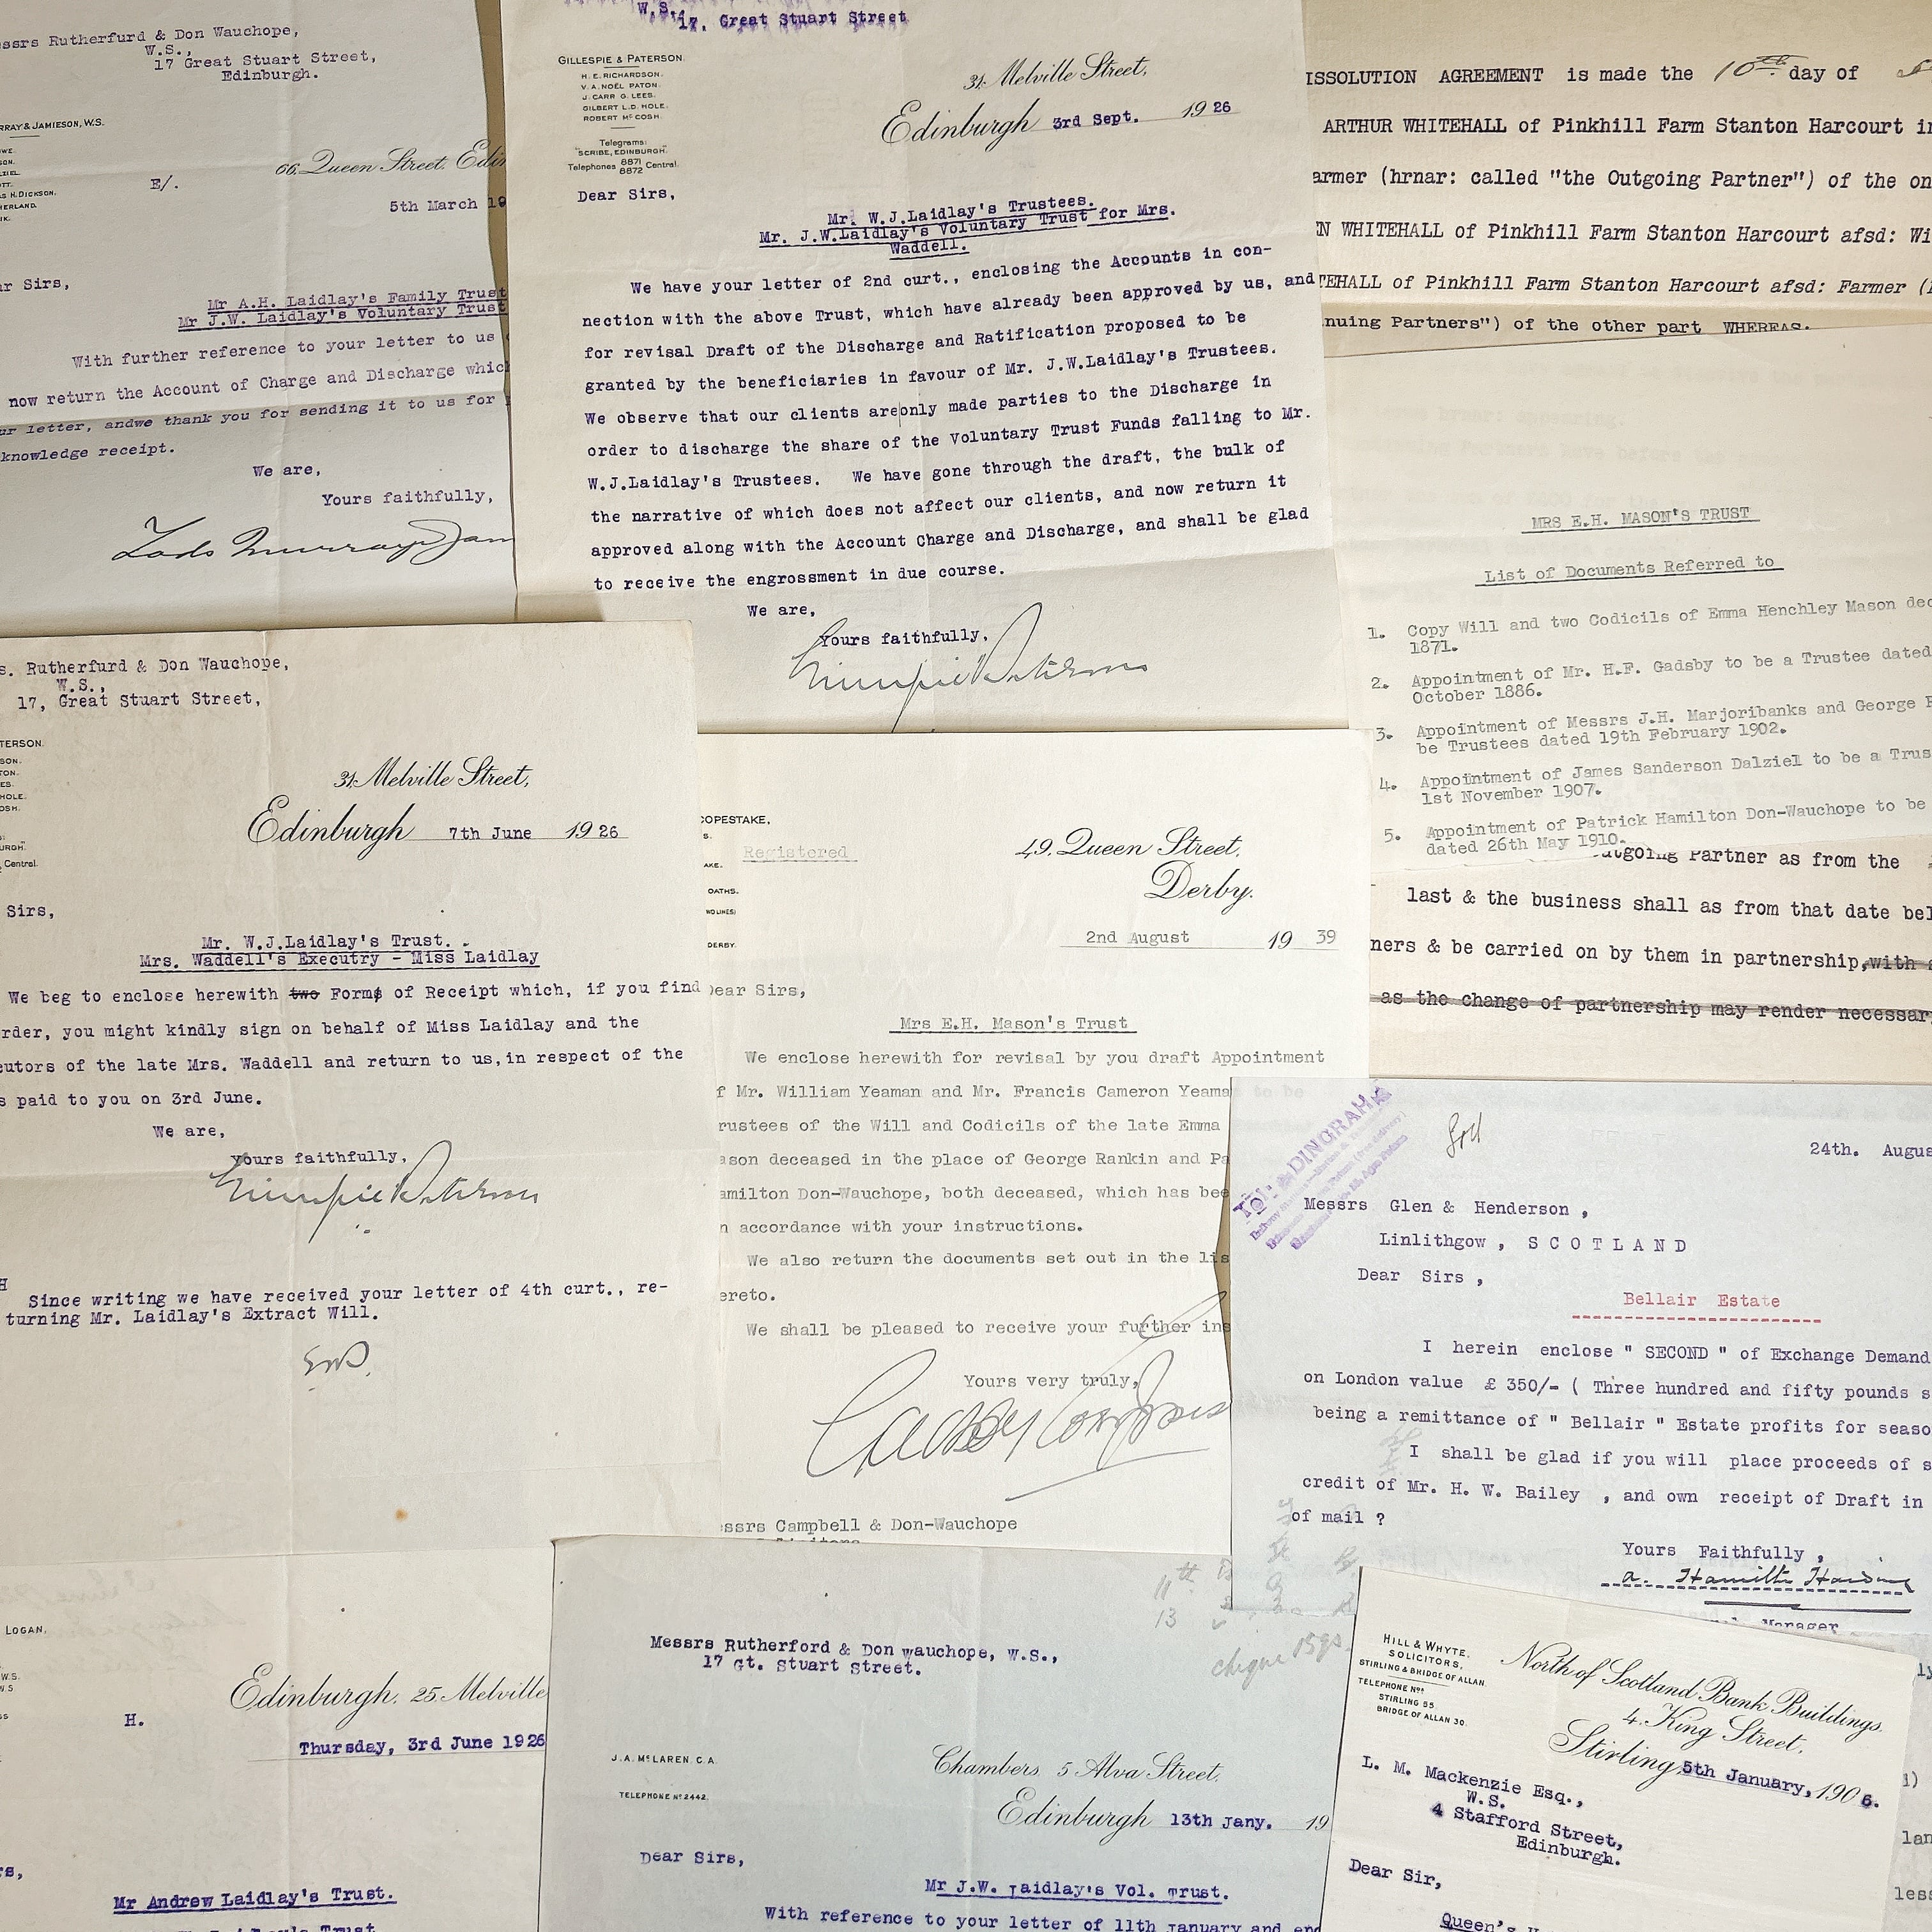 Messrs Rutherfurd & Don Wauchope,
W.S.,
17 Great Stuart Street,
Edinburgh.
RRAY & JAMIESON, W.S.
66. Queen Street. Edin
E/.
5th March 19
ar Sirs,
Mr A.H. Laidlay's Family Trust
Mr J.W. Laidlay's Voluntary Trust
With further reference to your letter to us
now return the Account of Charge and Discharge whic
ur letter, andwe thank you for sending it to us for
knowledge receipt.
We are,
Yours faithfully,
W.S.,
17, Great Stuart Street
GILLESPIE & PATERSON.
H. E. RICHARDSON.
V. A. NOËL PATON.
J. CARR G. LEES.
GILBERT L.D. HOLE.
ROBERT McCOSH.
Telegrams:
"SCRIBE, EDINBURGH."
Telephones 8871 8872 Central.
31. Melville Street,
Edinburgh 3rd Sept. 1926
Dear Sirs,
Mr. W.J.Laidlay's Trustees.
Mr. J.W.Laidlay's Voluntary Trust for Mrs.
Waddell.
We have your letter of 2nd curt., enclosing the Accounts in con-
nection with the above Trust, which have already been approved by us, and
for revisal Draft of the Discharge and Ratification proposed to be
granted by the beneficiaries in favour of Mr. J.W.Laidlay's Trustees.
We observe that our clients are only made parties to the Discharge in
order to discharge the share of the Voluntary Trust Funds falling to Mr.
W.J.Laidlay's Trustees. We have gone through the draft, the bulk of
the narrative of which does not affect our clients, and now return it
approved along with the Account Charge and Discharge, and shall be glad
to receive the engrossment in due course.
We are,
Yours faithfully,
ISSOLUTION AGREEMENT is made the 10th day of
ARTHUR WHITEHALL of Pinkhill Farm Stanton Harcourt in
armer (hrnar: called "the Outgoing Partner") of the on
EN WHITEHALL of Pinkhill Farm Stanton Harcourt afsd: Wi
TEHALL of Pinkhill Farm Stanton Harcourt afsd: Farmer (
nuing Partners") of the other part WHEREAS:
MRS E.H. MASON'S TRUST
List of Documents Referred to
1. Copy Will and two Codicils of Emma Henchley Mason dec
1871.
2. Appointment of Mr. H.F. Gadsby to be a Trustee dated
October 1886.
3. Appointment of Messrs J.H. Marjoribanks and George
be Trustees dated 19th February 1902.
4. Appointment of James Sanderson Dalziel to be a Trus
1st November 1907.
5. Appointment of Patrick Hamilton Don-Wauchope to be
dated 26th May 1910.
utgoing Partner as from the
last & the business shall as from that date bel
ners & be carried on by them in partnership,with
as the change of partnership may render necessar
s. Rutherfurd & Don Wauchope,
W.S.,
17, Great Stuart Street,
TERSON.
Central.
31. Melville Street,
Edinburgh 7th June 1926
Sirs,
Mr. W.J.Laidlay's Trust.
Mrs. Waddell's Executry - Miss Laidlay
We beg to enclose herewith two Forms of Receipt which, if you find
rder, you might kindly sign on behalf of Miss Laidlay and the
cutors of the late Mrs. Waddell and return to us,in respect of the
s paid to you on 3rd June.
We are,
Yours faithfully,
Since writing we have received your letter of 4th curt., re-
turning Mr. Laidlay's Extract Will.
COPESTAKE,
AKE.
OATHS.
DERBY.
Registered
49, Queen Street,
Derby.
2nd August 1939
Dear Sirs,
Mrs E.H. Mason's Trust
We enclose herewith for revisal by you draft Appointment
f Mr. William Yeaman and Mr. Francis Cameron Yeama to be
rustees of the Will and Codicils of the late Emma
ason deceased in the place of George Rankin and Pa
amilton Don-Wauchope, both deceased, which has bee
n accordance with your instructions.
We also return the documents set out in the lis
ereto.
We shall be pleased to receive your further ins
Yours very truly,
ssrs Campbell & Don-Wauchope
24th. Augus
Messrs Glen & Henderson ,
Linlithgow , SCOTLAND
Dear Sirs ,
Bellair Estate
I herein enclose " SECOND " of Exchange Demand
on London value £ 350/- ( Three hundred and fifty pounds s
being a remittance of " Bellair " Estate profits for seaso
I shall be glad if you will place proceeds of s
credit of Mr. H. W. Bailey , and own receipt of Draft in
of mail ?
Yours Faithfully ,
Manager
LOGAN,
Edinburgh. 25. Melville
H.
Thursday, 3rd June 1926
rs,
Mr Andrew Laidlay's Trust.
11th
13
cheque 15gs.
Messrs Rutherford & Don Wauchope, W.S.,
17 Gt. Stuart Street.
J. A. McLAREN. C. A.
TELEPHONE No 2442.
Chambers, 5 Alva Street,
Edinburgh 13th Jany. 19
Dear Sirs,
Mr J.W. Laidlay's Vol. Trust.
With reference to your letter of 11th January and enc
HILL & WHYTE.
SOLICITORS,
STIRLING & BRIDGE OF ALLAN.
TELEPHONE Nos
STIRLING 55.
BRIDGE OF ALLAN 30.
North of Scotland Bank Buildings.
4. King Street,
Stirling, 5th January, 1906.
L. M. Mackenzie Esq.,
W.S.
4 Stafford Street,
Edinburgh.
Dear Sir,
Queen's